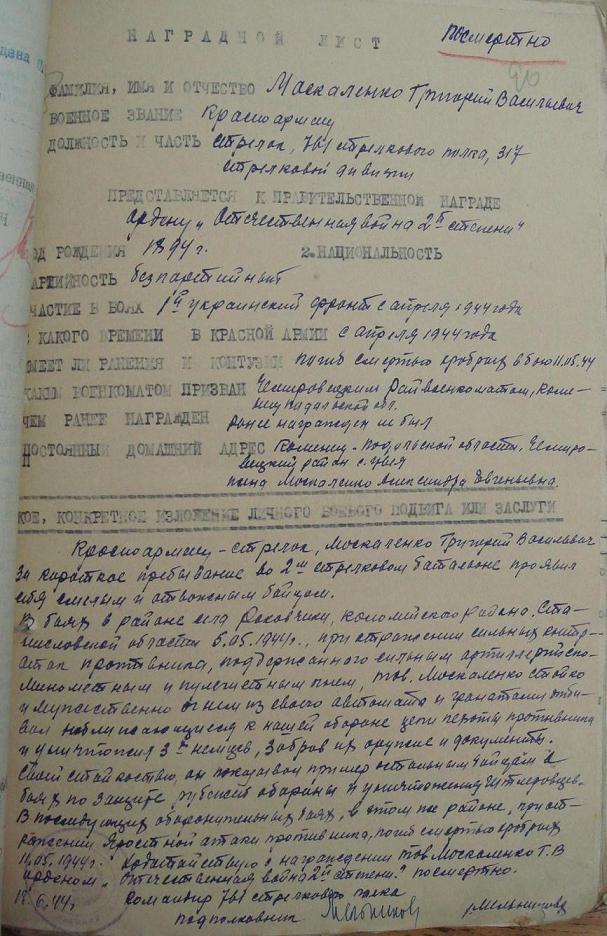 НАГРАДНОЙ ЛИСТ
посмертно
ФАМИЛИЯ, ИМЯ И ОТЧЕСТВО Москаленко Григорий Васильевич
ВОЕННОЕ ЗВАНИЕ Красноармеец
ДОЛЖНОСТЬ И ЧАСТЬ стрелок, 761 стрелкового полка, 317
стрелковой дивизии
ПРЕДСТАВЛЯЕТСЯ К ПРАВИТЕЛЬСТВЕННОЙ НАГРАДЕ
ордену „Отечественная война 2й степени"
ОД РОЖДЕНИЯ 1894 г. 2. НАЦИОНАЛЬНОСТЬ
АРТИЙНОСТЬ безпартийный
ЧАСТИЕ В БОЯХ 1й украинский фронт с апреля 1944 года
КАКОГО ВРЕМЕНИ В КРАСНОЙ АРМИИ с апреля 1944 года
МЕЕТ ЛИ РАНЕНИЯ И КОНТУЗИИ погиб смертью храбрых в бою 11.05.44
КАКИМ ВОЕНКОМАТОМ ПРИЗВАН Чемировецким Райвоенкоматом, Каме-
нец Подольской обл.
ЧЕМ РАНЕЕ НАГРАЖДЕН ранее награжден не был
ПОСТОЯННЫЙ ДОМАШНИЙ АДРЕС Каменец-Подольской области, Чемиро-
вецкий район с.
жена Москаленко Александра Евгеньевна.
КОЕ, КОНКРЕТНОЕ ИЗЛОЖЕНИЕ ЛИЧНОГО БОЕВОГО ПОДВИГА ИЛИ ЗАСЛУГИ
Красноармеец-стрелок, Москаленко Григорий Васильевич-
за короткое пребывание во 2м стрелковом батальоне проявил
себя смелым и отважным бойцом.
В боях в районе села Раковчики, Коломийского района, Ста-
ниславской области 6.05.1944г., при отражении сильных контр-
атак противника, поддержанного сильным артиллерийско-
минометным и пулеметным огнем, тов. Москаленко стойко
и мужественно огнем из своего автомата и гранатами
приближающиеся к нашей обороне цепи пехоты противника
и уничтожил 3х немцев, забрав их оружие и документы.
Своей стойкостью, он показывал пример остальным бойцам в
боях по защите рубежей обороны и уничтожении гитлеровцев.
В последующих оборонительных боях, в этом же районе, при от-
ражении яростной атаки противника, погиб смертью храбрых
11.05.1944г. Ходатайствую о награждении тов. Москаленко Г.В
орденом „Отечественная война 2й степени." посмертно.
18.6.44г. Командир 761 стрелкового полка
подполковник Мельников /Мельников/